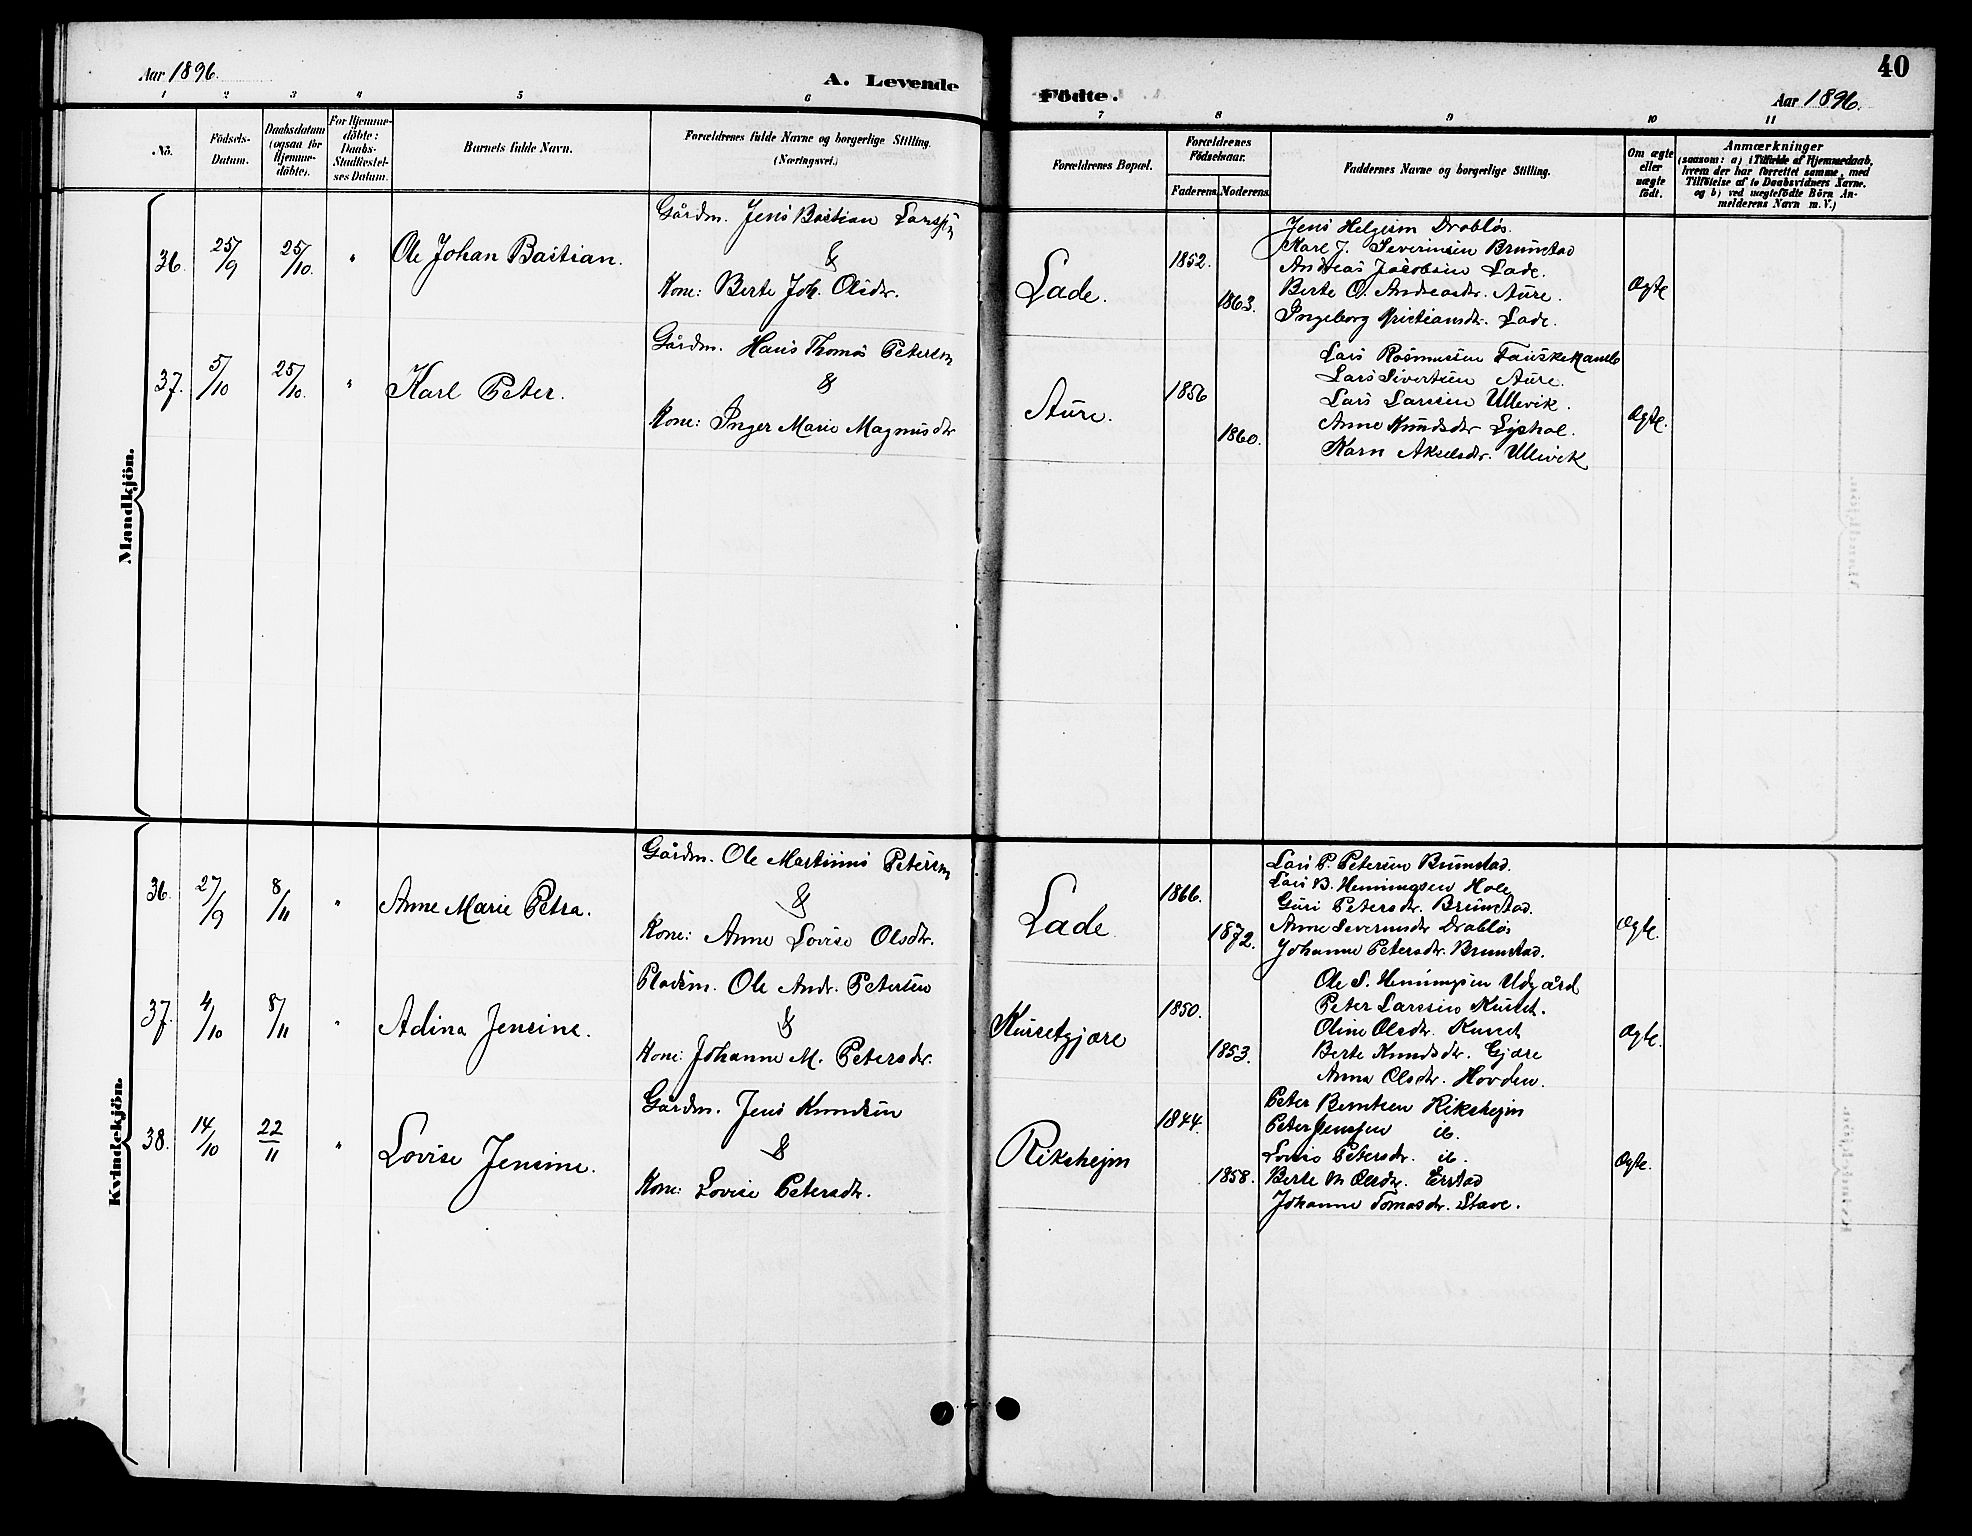 Aar 1896.
A. Levende
Födte.
40
Aar 1896.
1 2 3 4 5 6
7 8 9 10 11
No.
Födsels-
Datum.
Daabsdatum
(ogsaa for
Hjemme-
döbte).
For Hjemme-
döbte:
Daabs-
Stadfæstel-
ses Datum.
Barnets fulde Navn.
Forældrenes fulde Navne og borgerlige Stilling.
(Næringsvei.)
Forældrenes Bopæl.
Forældrenes
Födselsaar.
Faderens. Moderens.
Faddernes Navne og borgerlige Stilling.
Om ægte
eller
uægte
födt.
Anmærkninger
(saasom: a) i Tilfælde af Hjemmedaab,
hvem der har forrettet samme, med
Tilföielse af to Daabsvidners Navne.
og b) ved uægtefödte Börn An-
melderens Navn m. V.)
Mandkjön.
36. 25/9 25/10. " Ole Johan Bastian.
Gårdm. Jens Bastian Larssen
&
Kone: Berte Joh. Olsdtr.
Lade.
1852.
1863.
Jens Helgesen Drabløs.
Karl J. Severinsen Brunstad
Andreas Jacobsen Lade.
Berte O. Andreasdtr. Aure.
Ingeborg Kristiansdtr. Lade.
Ægte
37. 5/10 25/10. " Karl Peter.
Gårdm. Hans Thomas Petersen
&
Kone: Inger Marie Magnusdtr
Aure.
1856
1860.
Lars Rasmussen
Lars Sivertsen Aure.
Lars Larssen Ullevik.
Anne Knudsdtr Lyshol.
Karn Akselsdtr. Ullevik
Ægte.
Kvindekjön.
36. 27/9 8/11 " Anne Marie Petra.
Gårdm. Ole Martinus Petersen
&
Kone: Anne Lovise Olsdtr.
Lade
1866.
1872.
Lars P. Petersen Brunstad.
Lars B. Henningsen Hole
Guri Petersdtr. Brunstad.
Anne Severinsdtr Drabløs
Johanne Petersdtr. Brunstad.
Ægte.
37. 4/10 8/11 " Adina Jensine.
Pladsm. Ole Andr. Petersen
&
Kone: Johanne M. Petersdtr.
Kursetgjære
1850.
1853.
Ole S. Henningsen Udgård
Peter Larssen Kurset.
Oline Olsdtr. Kurset
Berte Knudsdtr. Gjære
Anna Olsdtr. Hovden.
Ægte.
38. 14/10 22/11 " Lovise Jensine.
Gårdm. Jens Knudsen
&
Kone: Lovise Petersdtr.
Riksheim
1844.
1858.
Peter Berntsen Riksheim
Peter Jenssen ib.
Lovise Petersdtr. ib.
Berte M Olsdtr. Erstad
Johanne Tomasdtr. Stave.
Ægte.